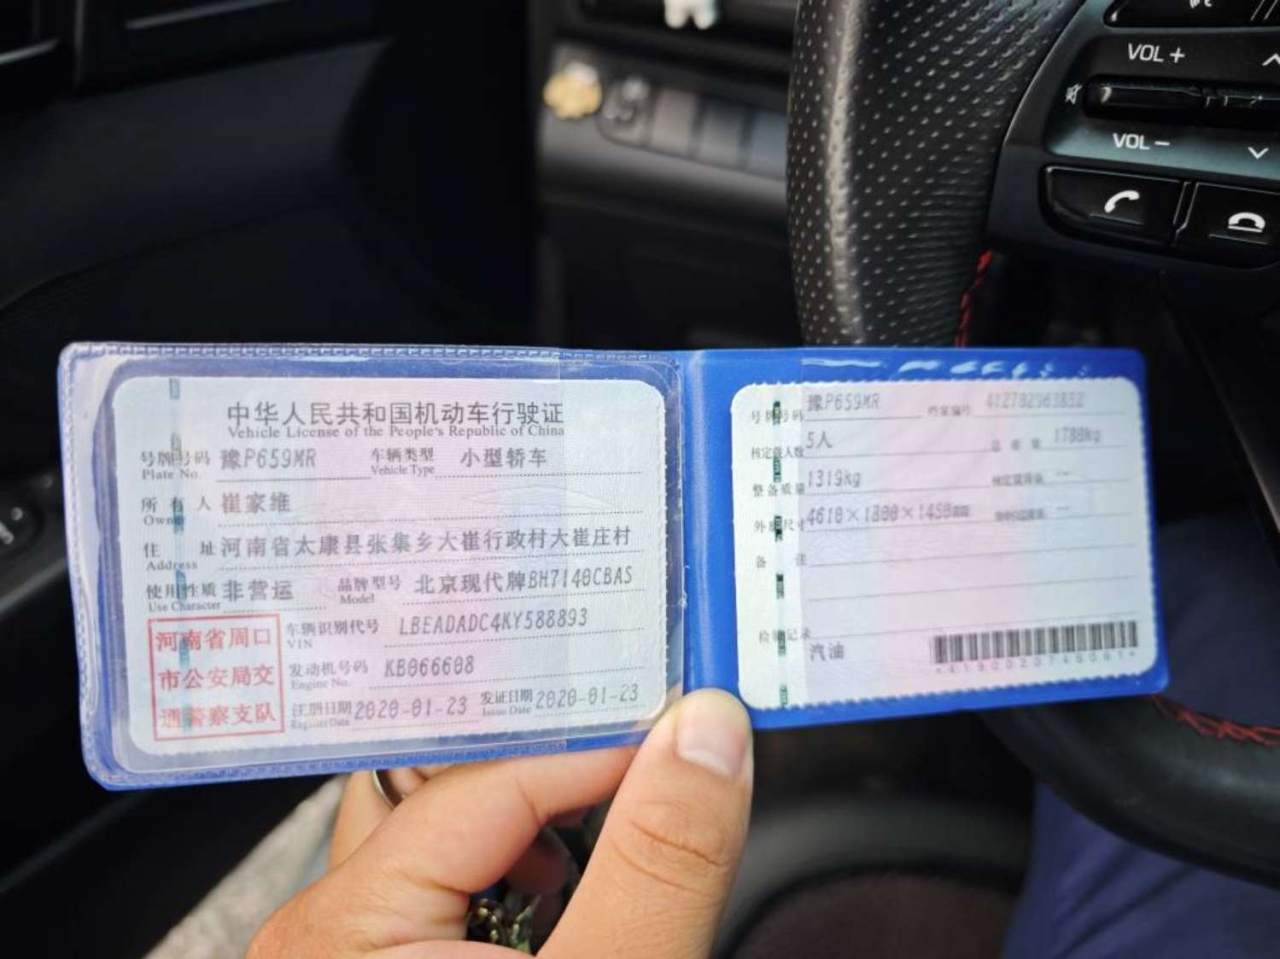 VOL +
VOL −
中华人民共和国机动车行驶证
Vehicle License of the People's Republic of China
号牌号码 豫P659MR 车辆类型 小型轿车
Plate No. Vehicle Type
所有人 崔家维
Owner
住址 河南省太康县张集乡大崔行政村大崔庄村
Address
使用性质 非营运 品牌型号 北京现代牌BH7140CBAS
Use Character Model
河南省周口
市公安局交
通警察支队
车辆识别代号 LBEADADC4KY588893
VIN
发动机号码 KB066608
Engine No.
注册日期 2020-01-23 发证日期 2020-01-23
Register Date Issue Date
号牌号码 豫P659MR 档案编号
核定载人数 5人 总质量 1780kg
整备质量 1319kg
外廓尺寸 4610×1800×1450
备注
检验记录
汽油